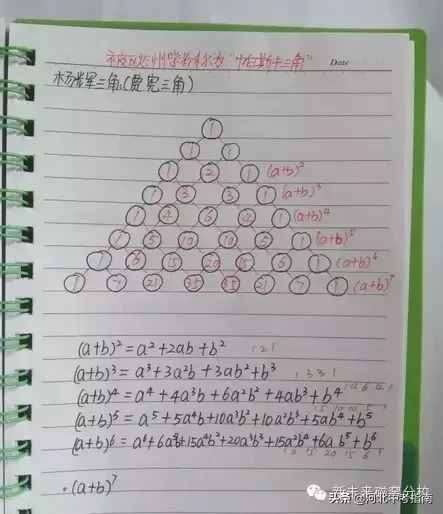 被欧洲学者称为"帕斯卡三角"
Date
杨辉三角(贾宪三角)
1
1 1
1 2 1 (a+b)²
1 3 3 1 (a+b)³
1 4 6 4 1 (a+b)⁴
1 5 10 10 5 1 (a+b)⁵
1 6 15 20 15 6 1 (a+b)⁶
1 7 21 35 35 21 7 1 (a+b)⁷
(a+b)²=a²+2ab+b² 1 2 1
(a+b)³=a³+3a²b+3ab²+b³ 1 3 3 1
(a+b)⁴=a⁴+4a³b+6a²b²+4ab³+b⁴
(a+b)⁵=a⁵+5a⁴b+10a³b²+10a²b³+5ab⁴+b⁵
(a+b)⁶=a⁶+6a⁵b+15a⁴b²+20a³b³+15a²b⁴+6ab⁵+b⁶
1 6 15 20 15 6 1
(a+b)⁷
头条@河北中考指南